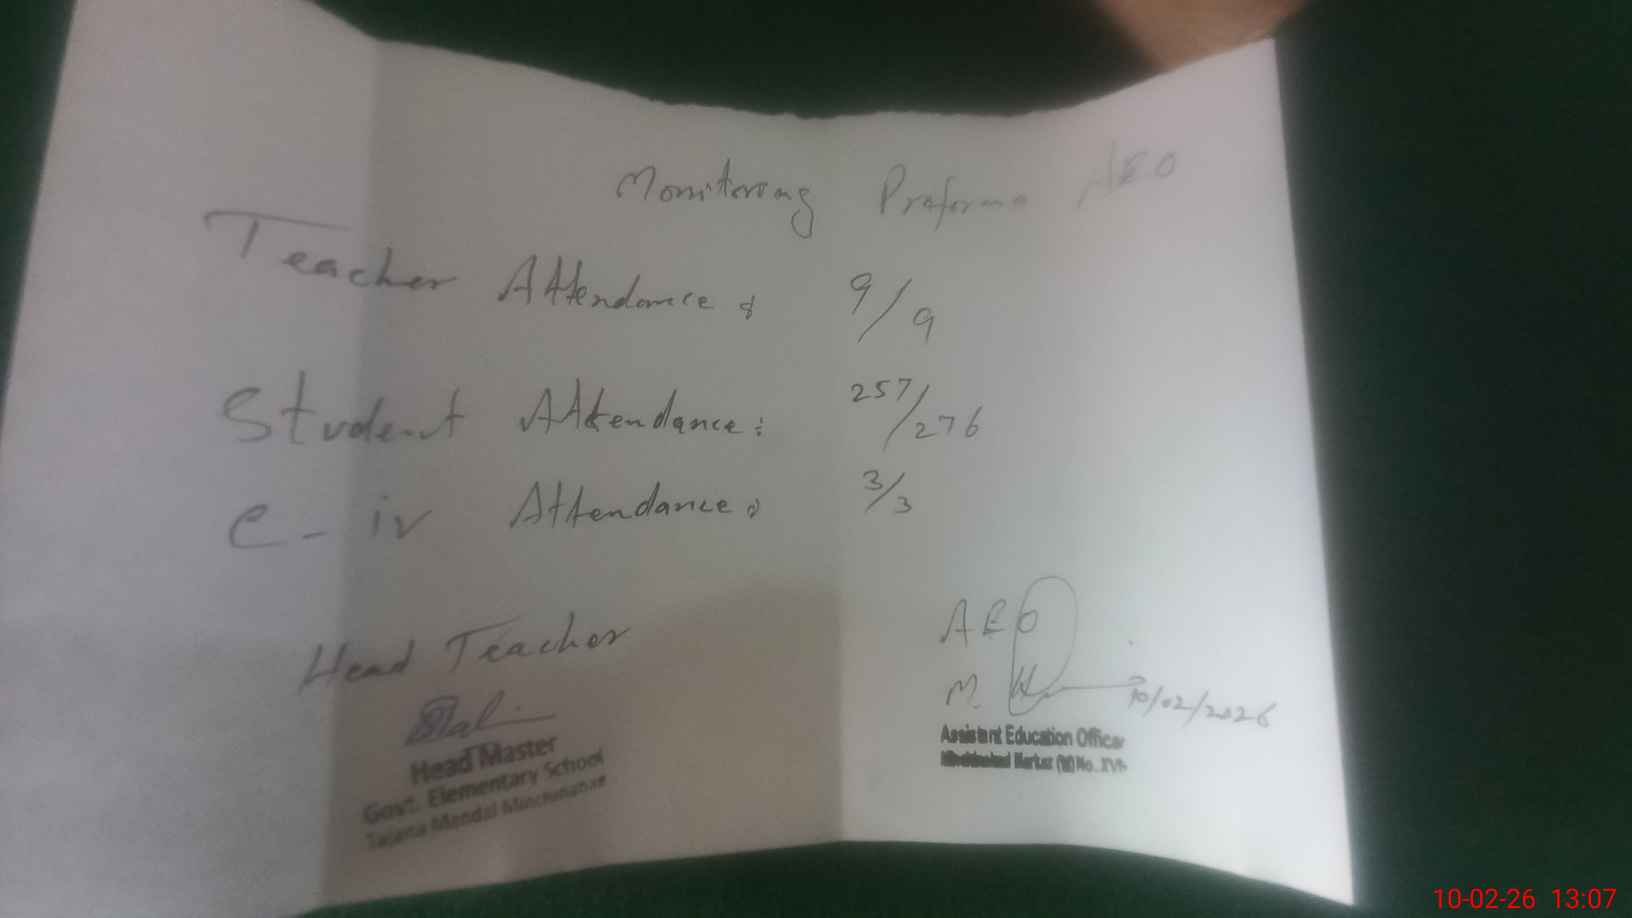 Monitoring Proforma AEO
Teacher Attendance: 9/9
Student Attendance: 257/276
C-iv Attendance: 3/3
Head Teacher
AEO
M.
10/02/2026
Head Master
Govt. Elementary School
Mandal Minchinabad
Assistant Education Officer
Markaz (M) No. XVI
10-02-26 13:07